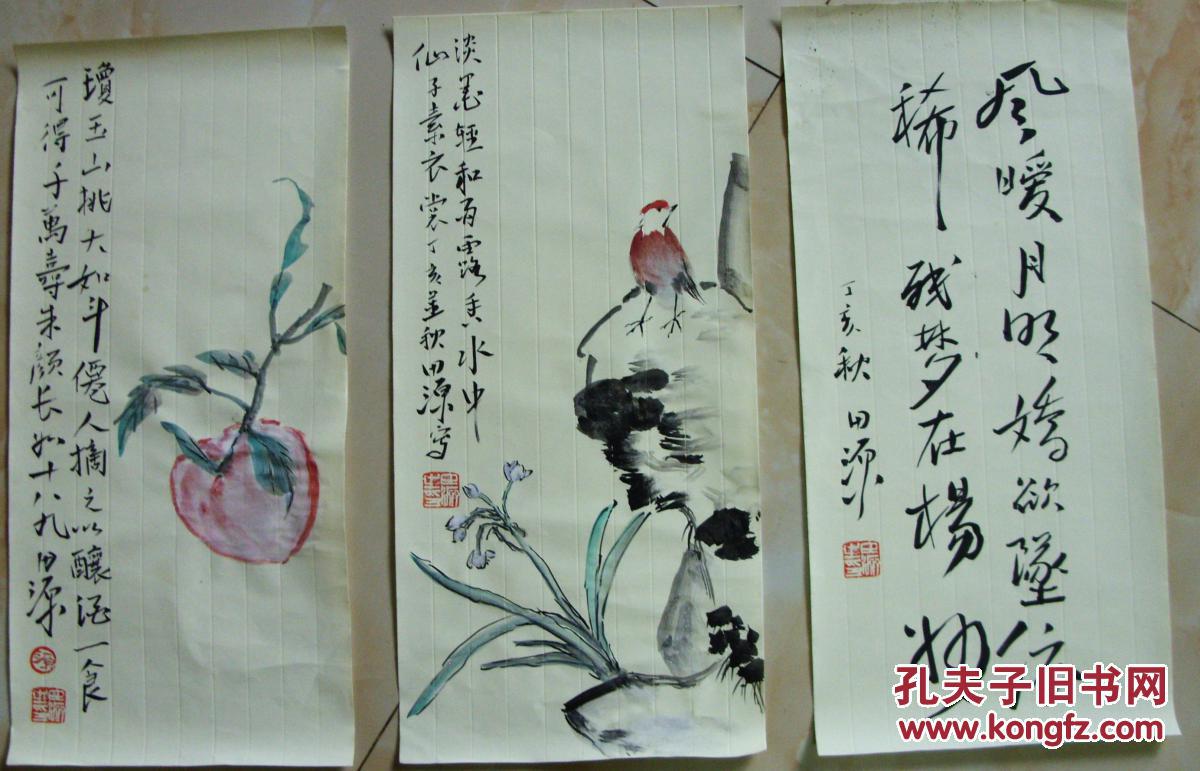 瓊玉山桃大如斗僊人摘之以釀酒一食
可得千萬壽朱顏长如十八九田源
淡墨輕和百露香水中
仙子素衣裳丁亥孟秋田源写
风暖月明嬌欲墜依
稀残梦在楊州
丁亥秋田源
孔夫子旧书网
www.kongfz.com